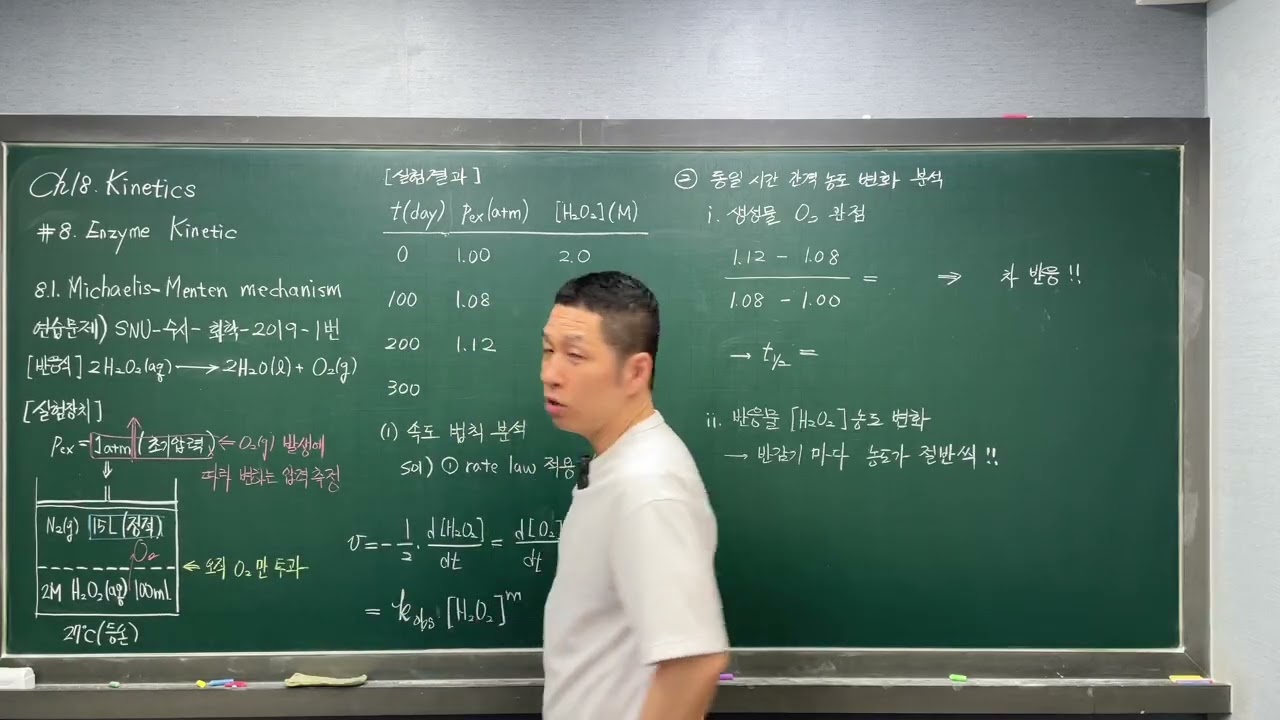 Ch18. Kinetics
#8. Enzyme Kinetic
8.1. Michaelis-Menten mechanism
연습문제) SNU-수시-화학-2019-1번
[반응식] 2H₂O₂(aq) ⟶ 2H₂O(l) + O₂(g)
[실험장치]
Pex = 1atm (초기압력) ⇐ O₂(g) 발생에
따라 변하는 압력 측정
N₂(g) 15L (정적)
O₂
⇐ 오직 O₂만 투과
2M H₂O₂(aq) 100mL
27℃(등온)
[실험결과]
t(day) Pex(atm) [H₂O₂](M)
0 1.00 2.0
100 1.08
200 1.12
300
(1) 속도 법칙 분석
sol) ① rate law 적용
v = -1/2 · d[H₂O₂]/dt = d[O₂]/dt
= kobs [H₂O₂]^m
② 동일 시간 간격 농도 변화 분석
i. 생성물 O₂ 관점
1.12 - 1.08
———— = ⇒ 차 반응!!
1.08 - 1.00
→ t1/2 =
ii. 반응물 [H₂O₂] 농도 변화
→ 반감기 마다 농도가 절반씩!!